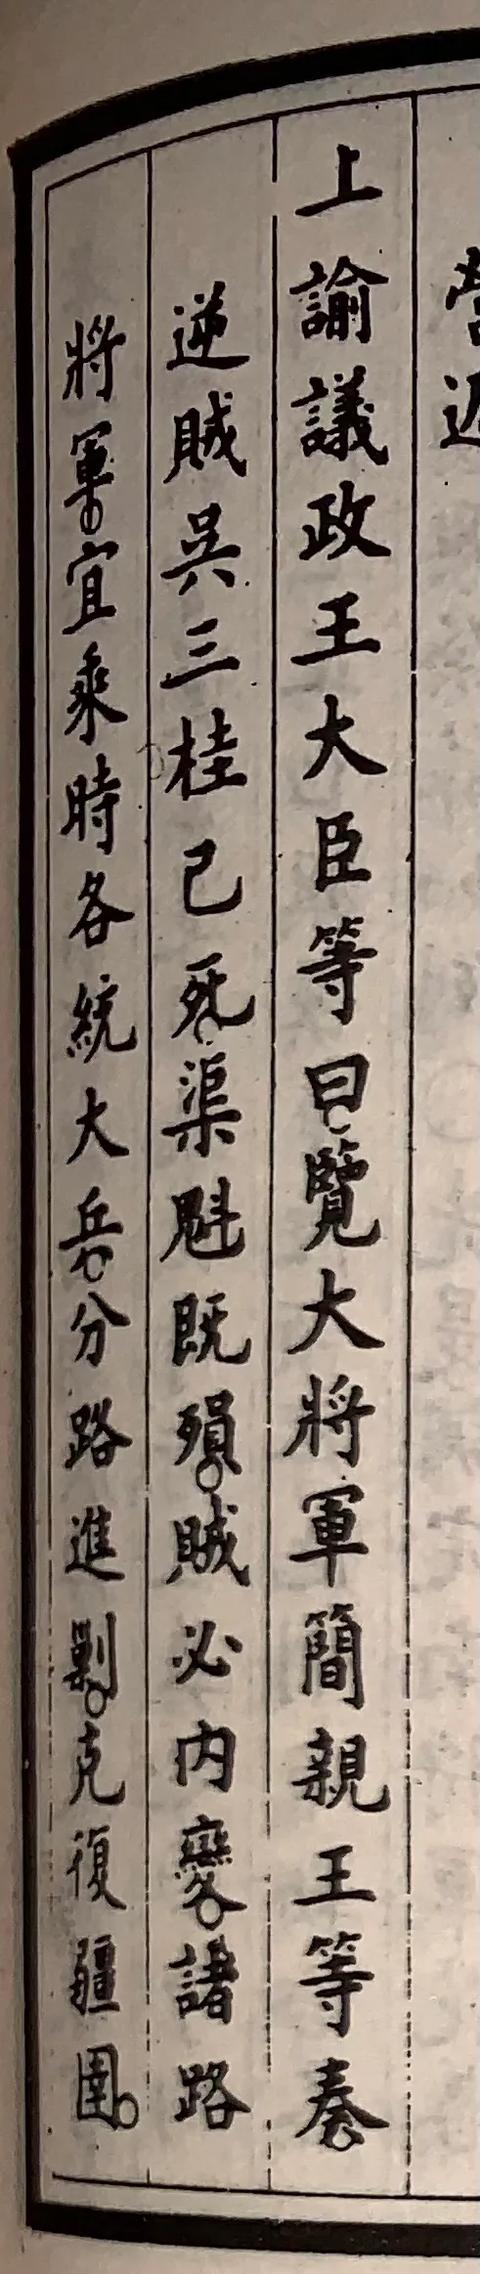 營迟
上諭議政王大臣等曰覽大將軍簡親王等奏
逆賊吳三桂已死渠魁既殞賊必內變諸路
將軍宜乘時各統大兵分路進剿克復疆圉